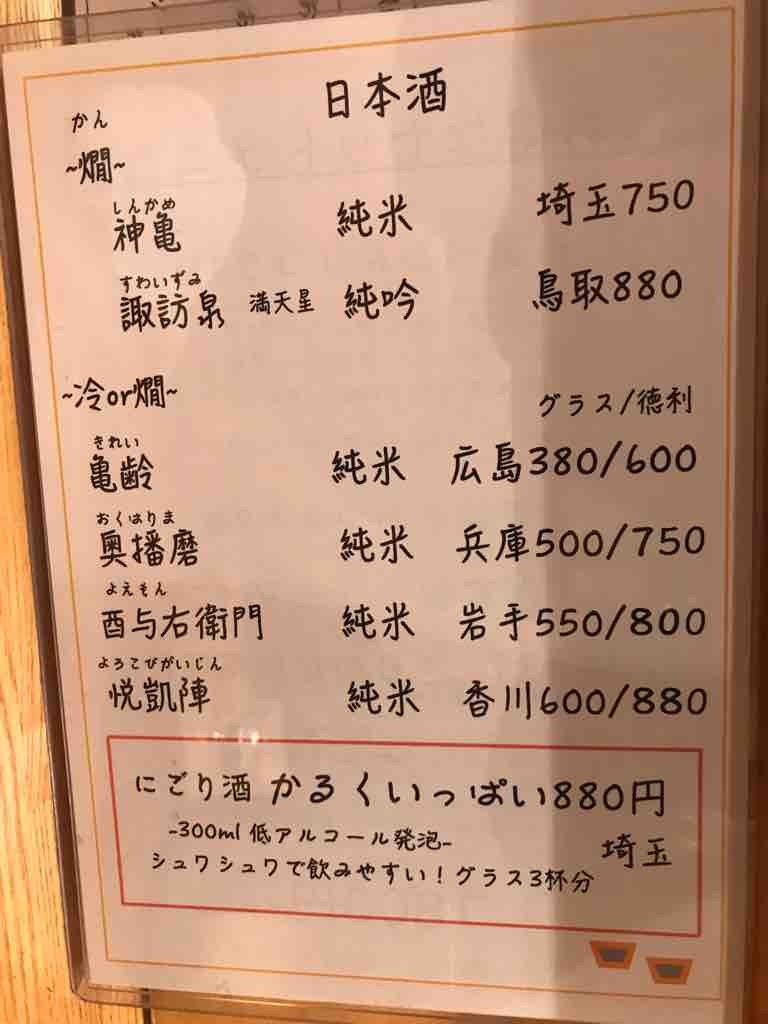 日本酒
かん
~燗~
しんかめ
神亀 純米 埼玉750
すわいずみ
諏訪泉 満天星 純吟 鳥取880
~冷or燗~
グラス/徳利
きれい
亀齢 純米 広島380/600
おくはりま
奥播磨 純米 兵庫500/750
よえもん
酉与右衛門 純米 岩手550/800
よろこびがいじん
悦凱陣 純米 香川600/880
にごり酒 かるくいっぱい880円
-300ml 低アルコール発泡-
埼玉
シュワシュワで飲みやすい！グラス3杯分